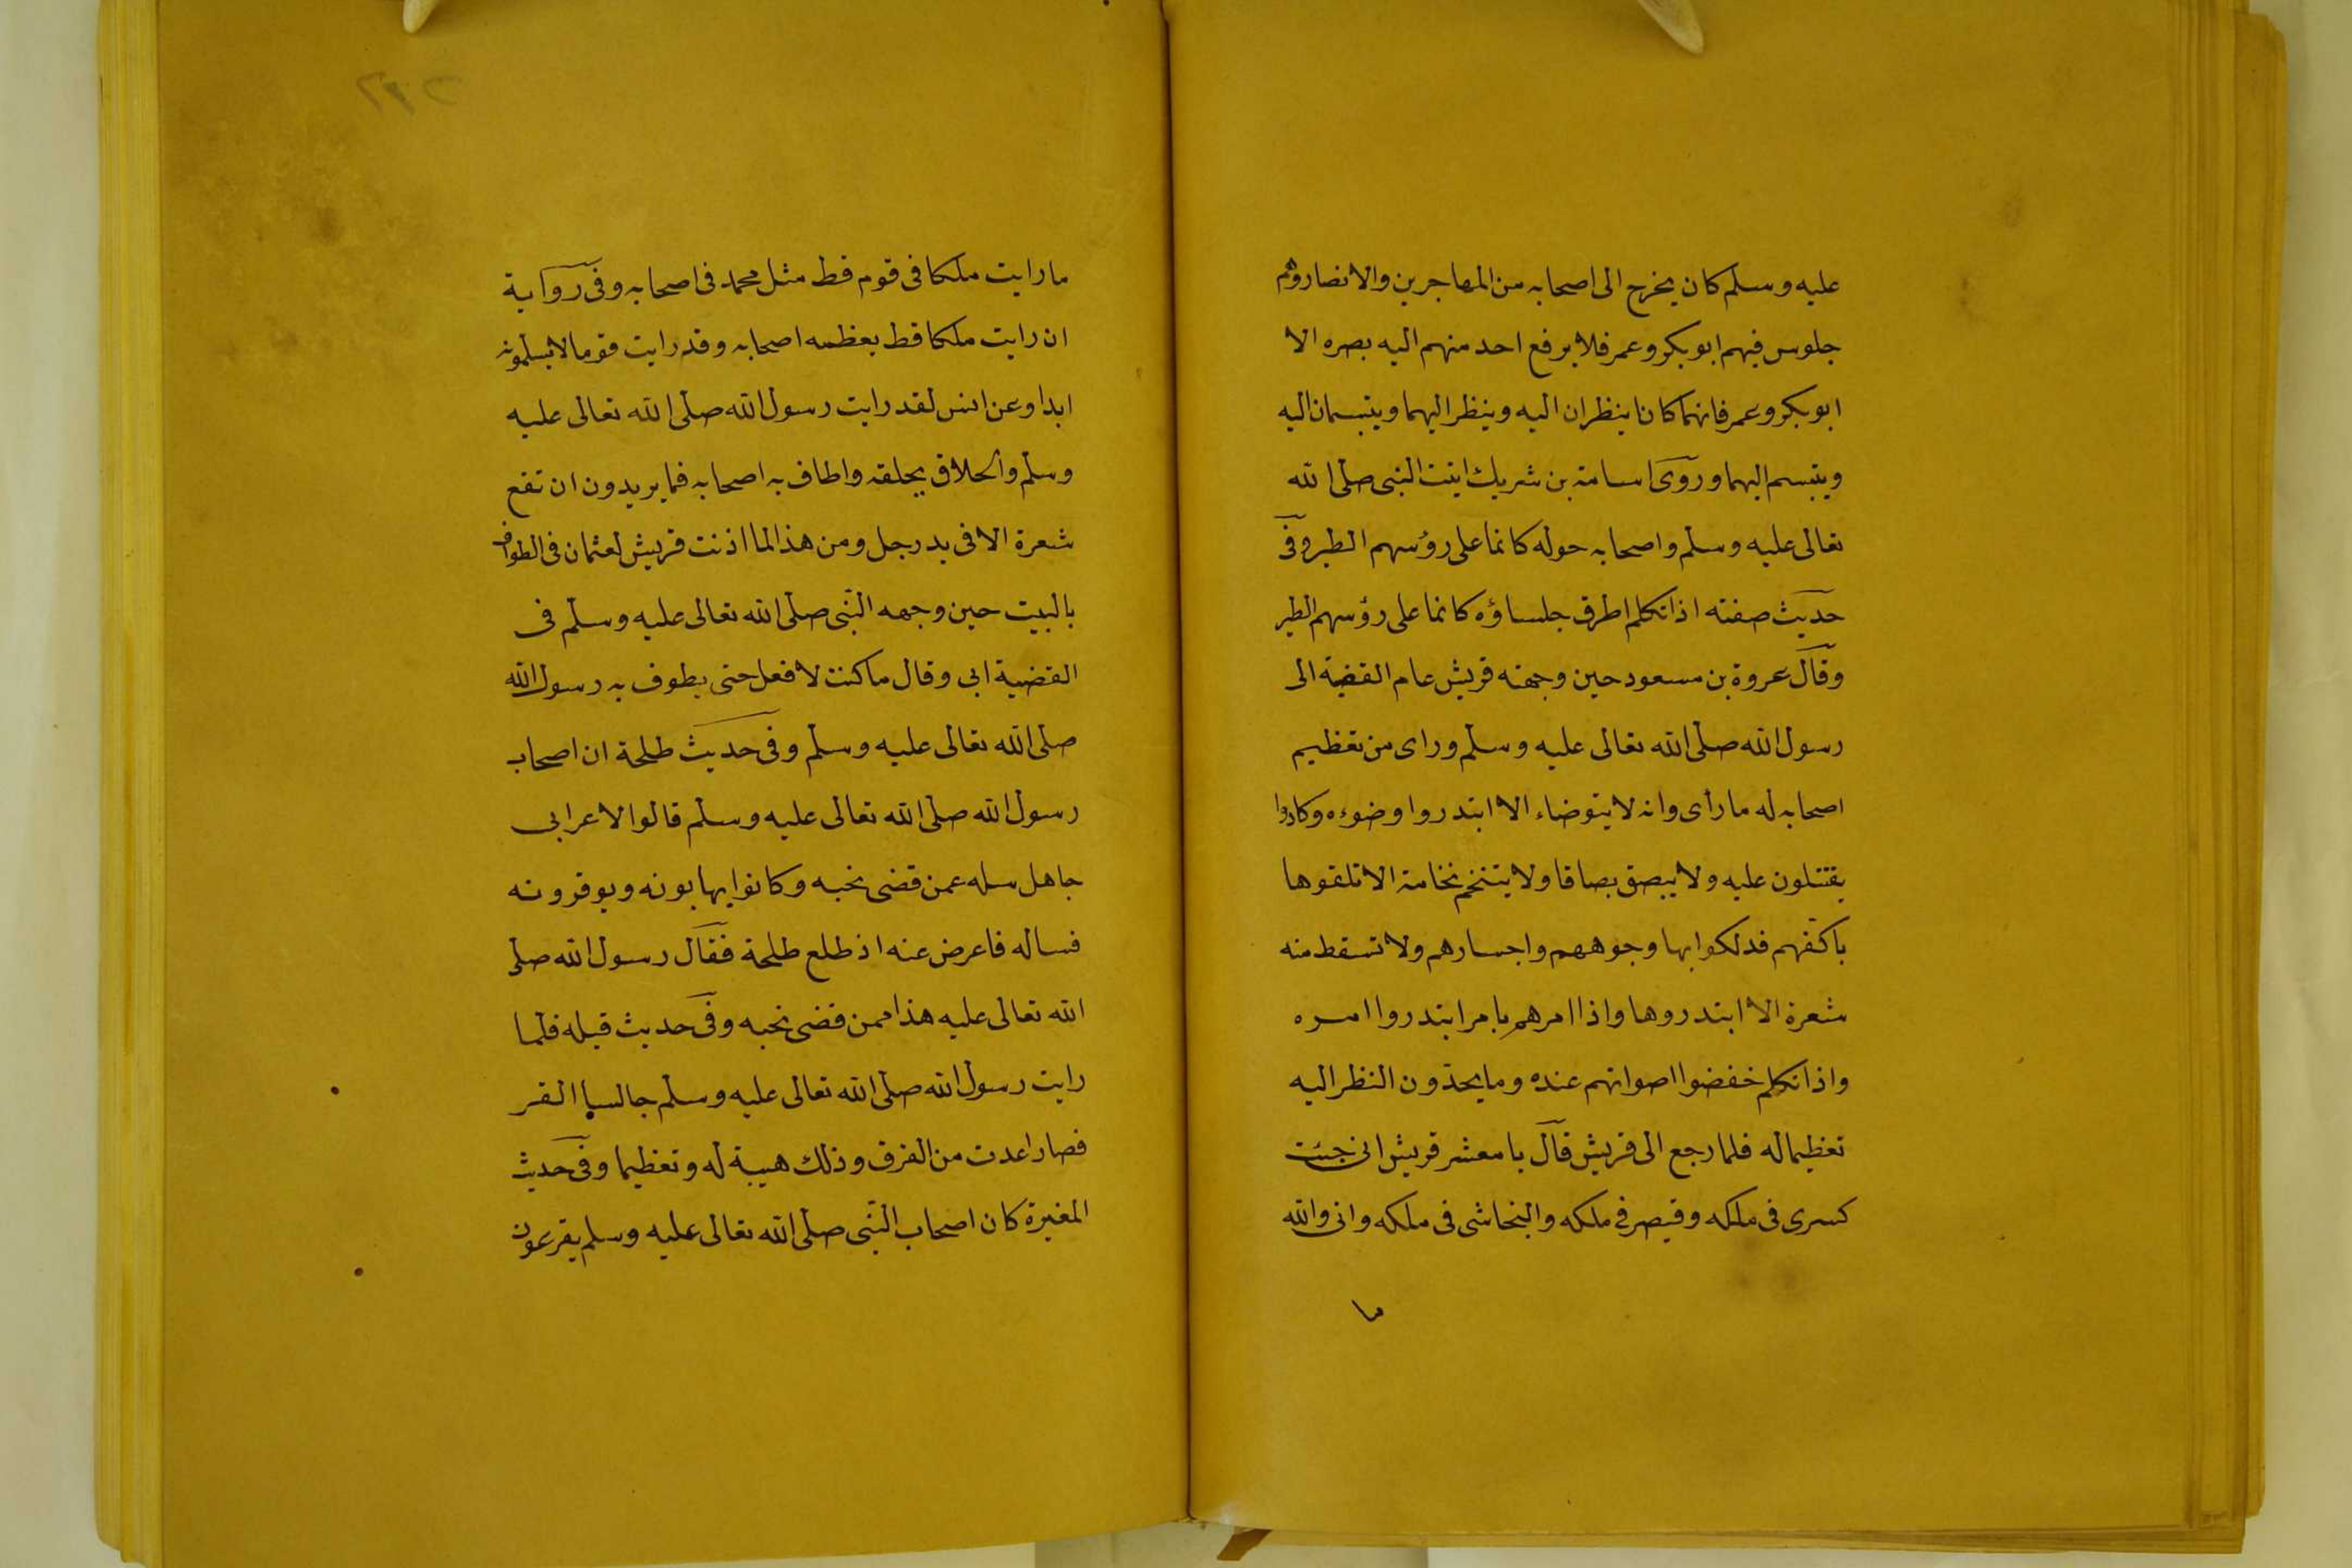 عليه وسلم كان يخرج الى اصحابه من المهاجرين والانصار وهم
جلوس فيهم ابو بكر وعمر فلا يرفع احد منهم اليه بصره الا
ابو بكر وعمر فانهما كانا ينظران اليه وينظر اليهما ويتبسمان اليه
ويتبسم اليهما وروى اسامة بن شريك اتيت النبى صلى الله
تعالى عليه وسلم واصحابه حوله كانما على رؤسهم الطير وفى
حديث صفته اذا تكلم اطرق جلساؤه كانما على رؤسهم الطير
وقال عروة بن مسعود حين وجهته قريش عام القضية الى
رسول الله صلى الله تعالى عليه وسلم وراى من تعظيم
اصحابه له ما رأى وانه لا يتوضاء الا ابتدروا وضوءه وكادوا
يقتتلون عليه ولا يبصق بصاقا ولا يتنخم نخامة الا تلقوها
باكفهم فدلكوا بها وجوههم واجسارهم ولا تسقط منه
شعرة الا ابتدروها واذا امرهم بامر ابتدروا امره
واذا تكلم خفضوا اصواتهم عنده وما يحدّون النظر اليه
تعظيما له فلما رجع الى قريش قال يا معشر قريش انى جئت
كسرى فى ملكه وقيصر فى ملكه والنجاشى فى ملكه وانى والله
ما
ما رايت ملكا فى قوم قط مثل محمد فى اصحابه وفى رواية
ان رايت ملكا قط يعظمه اصحابه وقد رايت قوما لا يسلمونه
ابدا وعن انس لقد رايت رسول الله صلى الله تعالى عليه
وسلم والحلاق يحلقه واطاف به اصحابه فما يريدون ان تقع
شعرة الا فى يد رجل ومن هذا لما اذنت قريش لعثمان فى الطواف
بالبيت حين وجهه النبى صلى الله تعالى عليه وسلم فى
القضية ابى وقال ما كنت لافعل حتى يطوف به رسول الله
صلى الله تعالى عليه وسلم وفى حديث طلحة ان اصحاب
رسول الله صلى الله تعالى عليه وسلم قالوا لاعرابى
جاهل سله عمن قضى نحبه وكانوا يهابونه ويوقرونه
فساله فاعرض عنه اذ طلع طلحة فقال رسول الله صلى
الله تعالى عليه هذا ممن قضى نحبه وفى حديث قيله فلما
رايت رسول الله صلى الله تعالى عليه وسلم جالسا القر
فصا ارعدت من الفرق وذلك هيبة له وتعظيما وفى حديث
المغيرة كان اصحاب النبى صلى الله تعالى عليه وسلم يقرعون